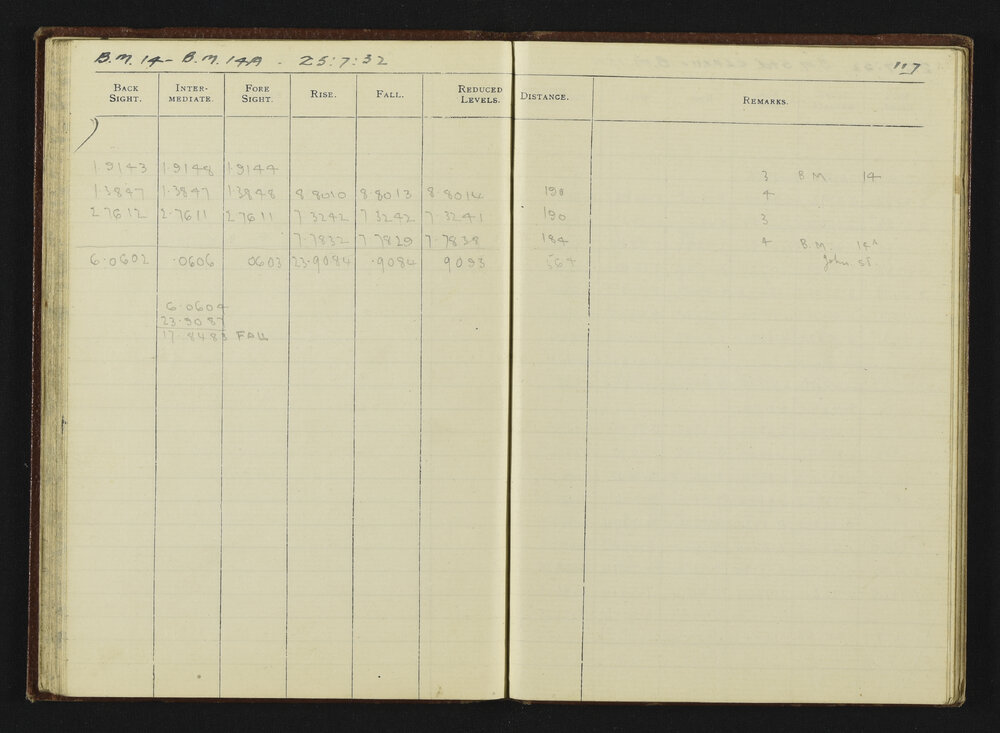 B.M. 14 - B.M. 14A . 25:7:32
117
BACK SIGHT. INTER-MEDIATE. FORE SIGHT. RISE. FALL. REDUCED LEVELS. DISTANCE. REMARKS.
1.9143 1.9148 1.9144 3 B M 14
1.3847 1.3847 1.3848 8 8010 8 8013 8 8014 190 4
2 7612 2.7611 2 7611 7 3242 7 3242 7.3241 190 3
7.7832 7 7829 7.7838 184 4 B.M. 14A
6.0602 .0606 0603 23.9084 .9084 9093 564 John. St.
6.0604
23.9087
17.8483 FALL